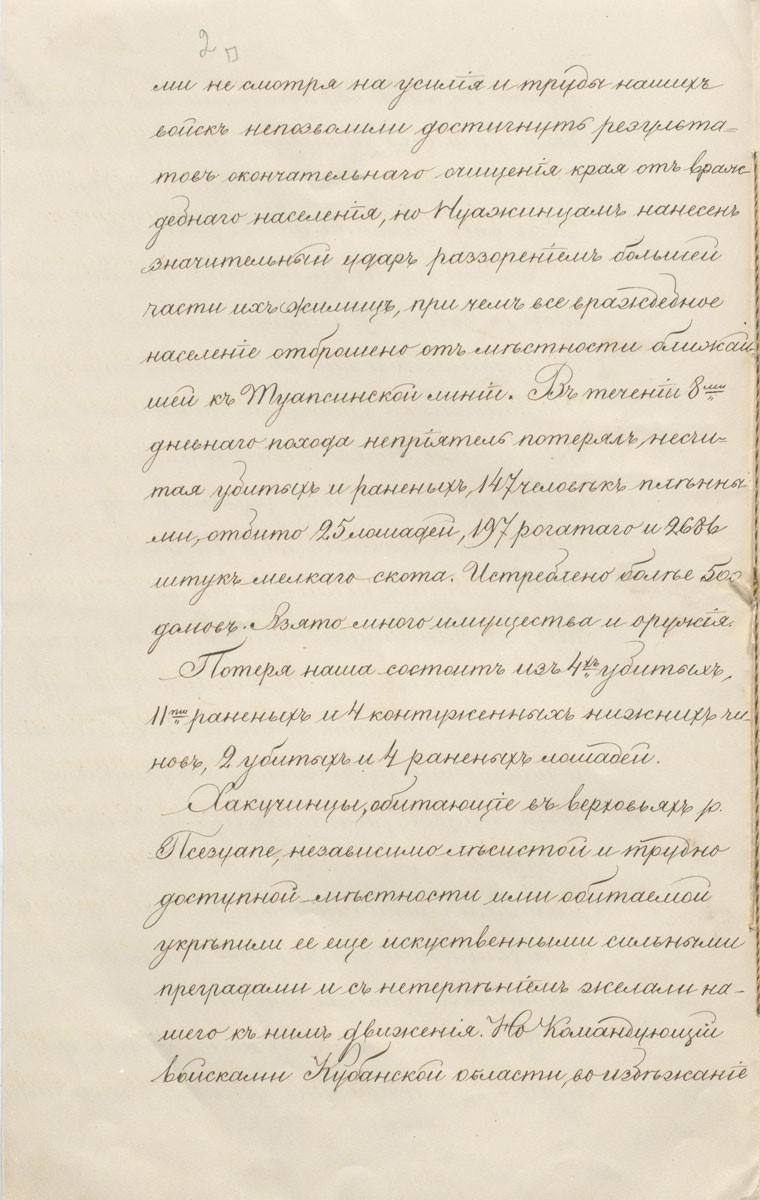 2
ми не смотря на усилія и труды нашихъ
войскъ непозволили достигнуть результа=
товъ окончательнаго очищенія края отъ враж-
дебнаго населенія, но Шуажинцамъ нанесенъ
значительный ударъ раззореніемъ большей
части ихъ жилищъ, при чемъ все враждебное
населеніе отброшено отъ мѣстности ближай
шей къ Туапсинской линіи. Въ теченіи 8ми
дневнаго похода непріятель потерялъ, несчи-
тая убитыхъ и раненыхъ, 147 человѣкъ плѣнны
ми, отбито 25 лошадей, 197 рогатаго и 2686
штукъ мелкаго скота. Истреблено болѣе 500
домовъ. Взято много имущества и оружія.
Потеря наша состоитъ изъ 4хъ убитыхъ,
11ти раненыхъ и 4 контуженныхъ нижнихъ чи
новъ, 2 убитыхъ и 4 раненыхъ лошадей.
Хакучинцы, обитающіе въ верховьяхъ р.
Псезуапе, независимо лѣсистой и трудно
доступной мѣстности ими обитаемой
укрѣпили ее еще искуственными сильными
преградами и съ нетерпѣніемъ желали на-
шего къ нимъ движенія. Но Командующій
войсками Кубанской области, во избѣжаніе